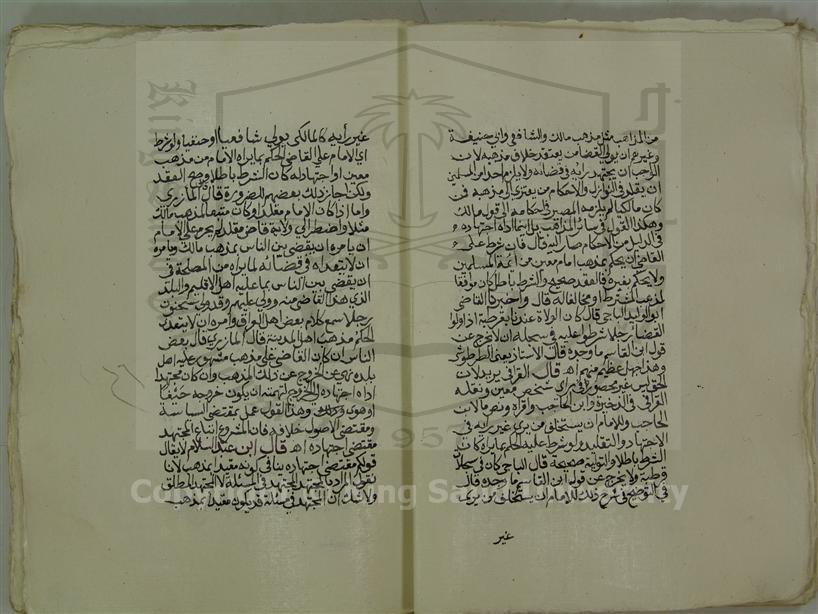 من المذاهب مثل مذهب مالك والشافعي وابي حنيفة
وغيرهم ان يولي القضا من يعتقد خلاف مذهبه لان
الواجب ان يجتهد رايه في قضائه ولا يلزم احدا من المسلمين
ان يقلد في النوازل والاحكام من يعتزي الى مذهبه فمن
كان مالكيا لم يلزمه المصير في احكامه الى قول مالك
وهكذا القول في سائر المذاهب بل اينما اداه اجتهاده
في الدليل من الاحكام صار اليه قال فان شرط على
القاضي ان يحكم بمذهب امام معين من ائمة المسلمين
ولا يحكم بغيره فالعقد صحيح والشرط باطل كان موافقا
لمذهب المشترط او مخالفا له قال واخبرنا القاضي
ابو الوليد الباجي قال كان الولاة عندنا بقرطبة اذا ولوا
القضا رجلا شرطوا عليه في سجله ان لا يخرج عن
قول ابن القاسم ما وجده قال الاستاذ يعني الطرطوشي
وهذا جهل عظيم منهم اهـ قال القرافي يريد لان
الحق ليس غير محصور في راي شخص معين ونقله
القرافي في الذخيرة وابن الحاجب واقراه ونص ما لابن
الحاجب وللامام ان يستخلف من يرى غير رايه في
الاجتهاد والتقليد ولو شرط عليه الحكم بما يراه كان
الشرط باطلا والتولية صحيحة قال الباجي كان في سجلات
قرطبة ولا يخرج عن قول ابن القاسم ما وجده قال
في التوضيح في شرح ذلك للامام ان يستخلف من يرى
غير
غير رايه كالمالكي يولي شافعيا او حنفيا ولو شرط
اي الامام على القاضي الحكم بما يراه الامام من مذهب
معين او اجتهاد له كان الشرط باطلا وصح العقد
ولكن اجاز ذلك بعضهم للضرورة قال المازري
واما اذا كان الامام مقلدا وكان متبعا لمذهب مالك
مثلا واضطر الى ولاية قاض مقلد لم يحرم على الامام
ان يامره ان يقضي بين الناس بمذهب مالك ويامره
ان لا يتعداه في قضائه لما يراه من المصلحة في
ان يقضي بين الناس بما عليه اهل الاقليم والبلد
الذي هذا القاضي منه وولي عليهم وقد ولى سحنون
رجلا سمع كلام بعض اهل العراق وامره ان لا يتعدى
الحكم بمذهب اهل المدينة قال المازري قال بعض
الناس ان كان القاضي على مذهب مشهور عليه اهل
بلده نهي عن الخروج عن ذلك المذهب وان كان مجتهدا
اداه اجتهاده الى الخروج لتهمته ان يكون خروجه حيفا
او هوى وكذلك وهذا القول عمل بمقتضى السياسة
ومقتضى الاصول خلافه فان المشروع اتباع المجتهد
مقتضى اجتهاده اهـ قال ابن عبد السلام لا يقال
قولكم مقتضى اجتهاده ينافي كونه مقيدا بمذهب لانا
نقول المراد بالمجتهد المجتهد في المسئلة لا المجتهد المطلق
ولا شك ان المجتهد في مسئلة قد يكون مقيدا بمذهب